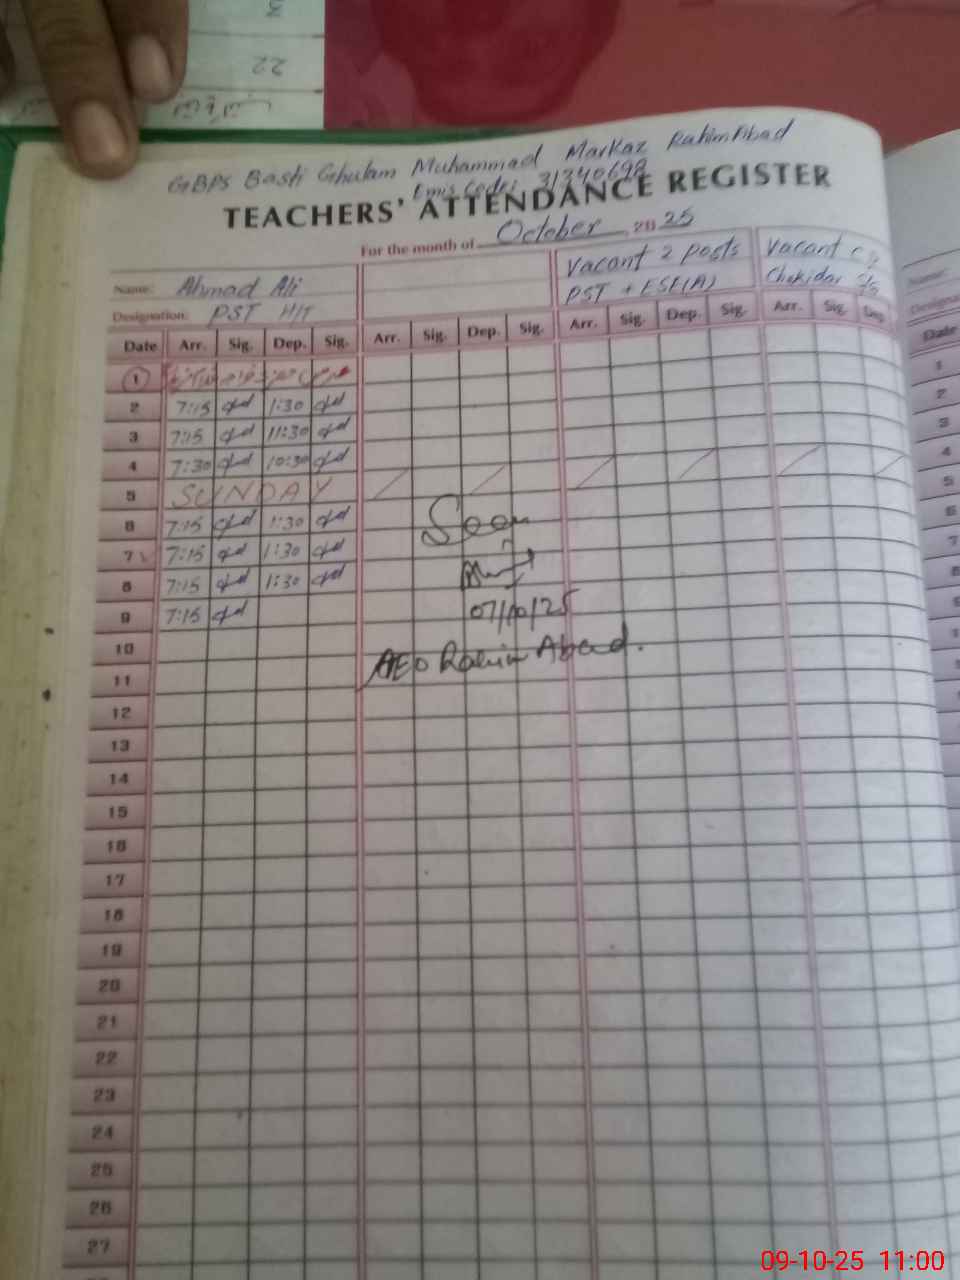 22
GBPS Basti Ghulam Muhammad Markaz RahimAbad
Emis Code: 31340698
TEACHERS' ATTENDANCE REGISTER
For the month of October 2025
Name: Ahmad Ali Vacant 2 posts Vacant
Designation: PST H/T PST + ESE(A) Chokidar
Date Arr. Sig. Dep. Sig. Arr. Sig. Dep. Sig. Arr. Sig. Dep. Sig. Arr. Sig. Dep.
1
2 7:15 1:30
3 7:15 11:30
4 7:30 10:30
5 SUNDAY
6 7:15 1:30 Seen
7 7:15 1:30
8 7:15 1:30
9 7:15 07/10/25
10 AEO Rahim Abad.
11
12
13
14
15
16
17
18
19
20
21
22
23
24
25
26
27
Name:
Date
1
2
3
4
5
6
7
8
09-10-25 11:00